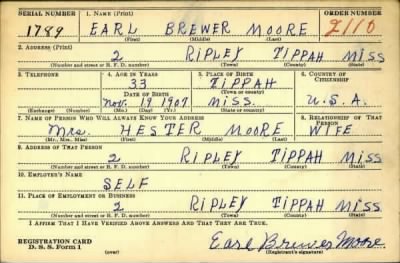 SERIAL NUMBER 1. NAME (Print) ORDER NUMBER
1789 EARL BREWER MOORE 2110
(First) (Middle) (Last)
2. ADDRESS (Print)
2 RIPLEY TIPPAH MISS
(Number and street or R. F. D. number) (Town) (County) (State)
3. TELEPHONE 4. AGE IN YEARS 5. PLACE OF BIRTH 6. COUNTRY OF CITIZENSHIP
33 TIPPAH
DATE OF BIRTH (Town or county)
Nov. 19 1907 MISS. U.S.A.
(Exchange) (Number) (Mo.) (Day) (Yr.) (State or country)
7. NAME OF PERSON WHO WILL ALWAYS KNOW YOUR ADDRESS 8. RELATIONSHIP OF THAT PERSON
Mrs. HESTER MOORE WIFE
(Mr., Mrs., Miss) (First) (Middle) (Last)
9. ADDRESS OF THAT PERSON
2 RIPLEY TIPPAH MISS
(Number and street or R. F. D. number) (Town) (County) (State)
10. EMPLOYER'S NAME
SELF
11. PLACE OF EMPLOYMENT OR BUSINESS
2 RIPLEY TIPPAH MISS
(Number and street or R. F. D. number) (Town) (County) (State)
I AFFIRM THAT I HAVE VERIFIED ABOVE ANSWERS AND THAT THEY ARE TRUE.
REGISTRATION CARD
D. S. S. Form 1 (over) Earl Brewer Moore
(Registrant's signature)